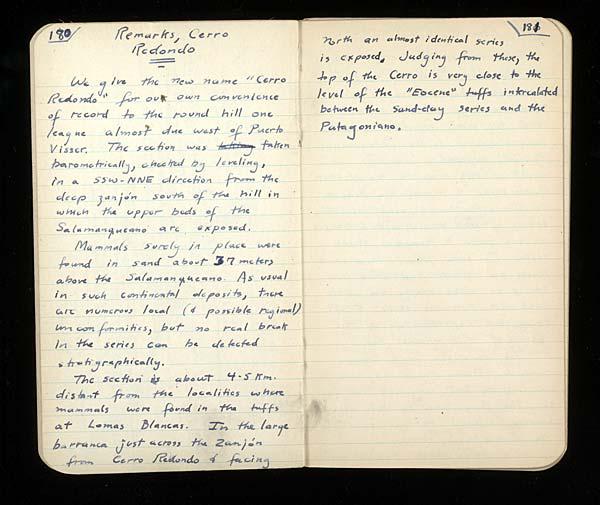 180
Remarks, Cerro
Redondo
We give the new name "Cerro
Redondo" for our own convenience
of record to the round hill one
league almost due west of Puerto
Visser. The section was taking taken
barometrically, checked by leveling,
in a SSW-NNE direction from the
deep zanjón south of the hill in
which the upper beds of the
Salamanqueano are exposed.
Mammals surely in place were
found in sand about 37 meters
above the Salamanqueano. As usual
in such continental deposits, there
are numerous local (& possible regional)
unconformities, but no real break
in the series can be detected
stratigraphically.
The section is about 4-5 Km.
distant from the localities where
mammals were found in the tuffs
at Lomas Blancas. In the large
barranca just across the zanjón
from Cerro Redondo & facing
181
north an almost identical series
is exposed. Judging from these, the
top of the Cerro is very close to the
level of the "Eocene" tuffs intercalated
between the sand-clay series and the
Patagoniano.